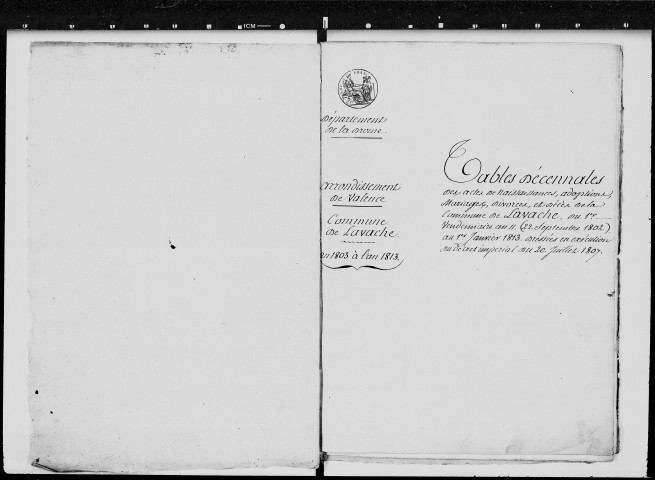 Département
De la Drome.
arrondissement
De Valence
Commune
De Lavache.
an 1803 à l'an 1813.
Tables Décennales
Des actes de Naissances, adoptions,
Mariages, divorces, et décès de la
Commune de Lavache, du 1er
Vendemiaire an 11. (23. Septembre 1802.)
au 1er Janvier 1813. dressées en exécution
du décret imperial du 20. Juillet 1807.